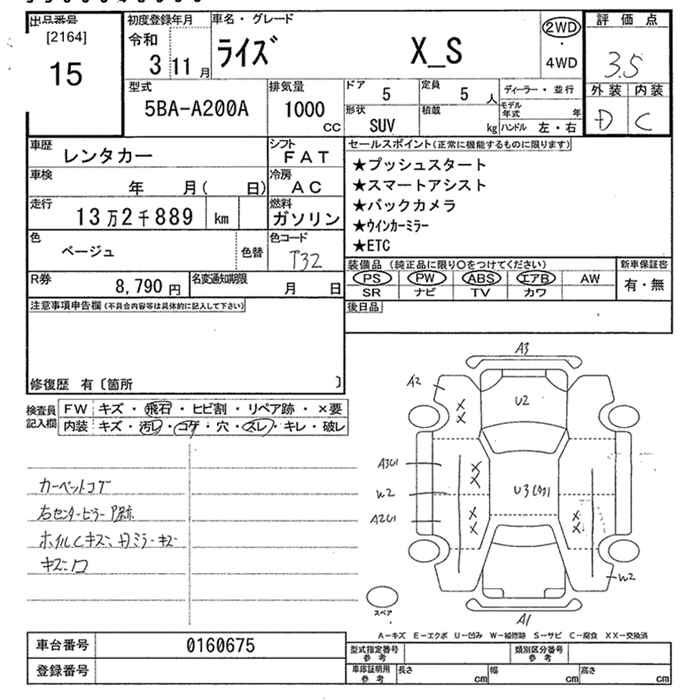 出品番号
[2164]
15
初度登録年月
令和
3 11 月
車名・グレード
ライズ X_S
2WD
・
4WD
評価点
3.5
外装 内装
D C
型式
5BA-A200A
排気量
1000
CC
ドア 5
定員 5 人
形状 SUV
積載 kg
ディーラー・並行
モデル年式 年
ハンドル 左・右
車歴 レンタカー
シフト FAT
車検 年 月( 日)
冷房 AC
走行 13万2千889 km
燃料 ガソリン
色 ベージュ 色替
色コード T32
R券 8,790 円
名変通知期限 月 日
セールスポイント(正常に機能するものに限ります)
★プッシュスタート
★スマートアシスト
★バックカメラ
★ウインカーミラー
★ETC
装備品 (純正品に限り○をつけてください)
PS PW ABS エアB AW
SR ナビ TV カワ
新車保証書
有・無
後日品
注意事項申告欄(不具合内容等は具体的に記入して下さい)
修復歴 有〔箇所 〕
検査員記入欄
FW キズ・飛石・ヒビ割・リペア跡・×要
内装 キズ・汚レ・コゲ・穴・スレ・キレ・破レ
カーペットコゲ
右センターピラー
A3
A2
U2
W2
U3
W2
A1
スペア
A-キズ E-エクボ U-凹み W-補修跡 S-サビ C-腐食 XX-交換済
車台番号 0160675
登録番号
型式指定番号 参考
類別区分番号 参考
車庫証明用 参考
長さ cm
幅 cm
高さ cm